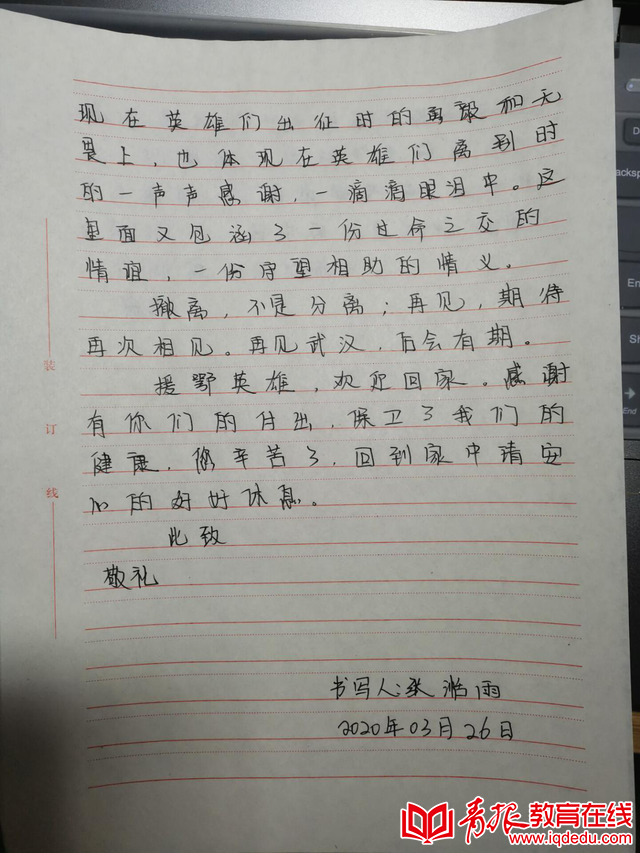 现在英雄们出征时的勇毅和无
畏上，也体现在英雄们离别时
的一声声感谢，一滴滴眼泪中。这
里面又包涵了一份过命之交的
情谊，一份守望相助的情义。
撤离，不是分离；再见，期待
再次相见。再见武汉，后会有期。
援鄂英雄，欢迎回家。感谢
有你们的付出，保卫了我们的
健康，您辛苦了，回到家中请安
心的好好休息。
此致
敬礼
书写人:张 雨
2020年03月26日
装
订
线
青报教育在线
www.iqdedu.com
Backsp
En
Shi
End